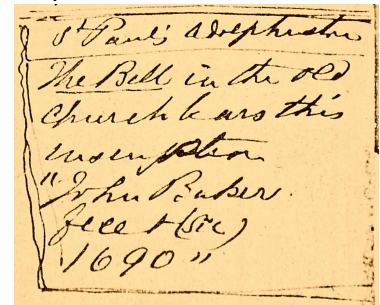 St Paul's Adolphustn
The Bell in the old
church bears this
inscription
"John Baker
fecet (sic)
1690"